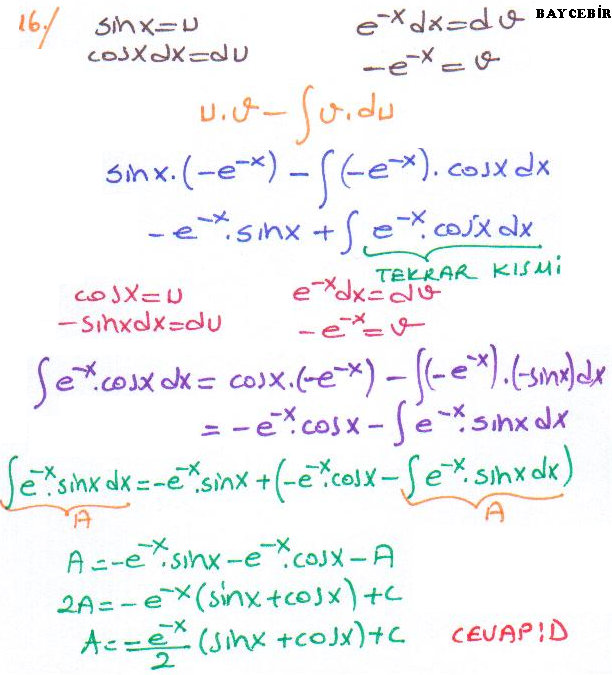 16./ sinx=u e^-x dx=dv BAYCEBİR
cosxdx=du -e^-x=v
u.v-∫v.du
sinx.(-e^-x)-∫(-e^-x).cosxdx
-e^-x.sinx+∫e^-x.cosxdx
TEKRAR KISMI
cosx=u e^-x dx=dv
-sinxdx=du -e^-x=v
∫e^-x.cosxdx=cosx.(-e^-x)-∫(-e^-x).(-sinx)dx
=-e^-x.cosx-∫e^-x.sinxdx
∫e^-x.sinxdx=-e^-x.sinx+(-e^-x.cosx-∫e^-x.sinxdx)
A A
A=-e^-x.sinx-e^-x.cosx-A
2A=-e^-x(sinx+cosx)+c
A=-e^-x/2 (sinx+cosx)+c CEVAP:D